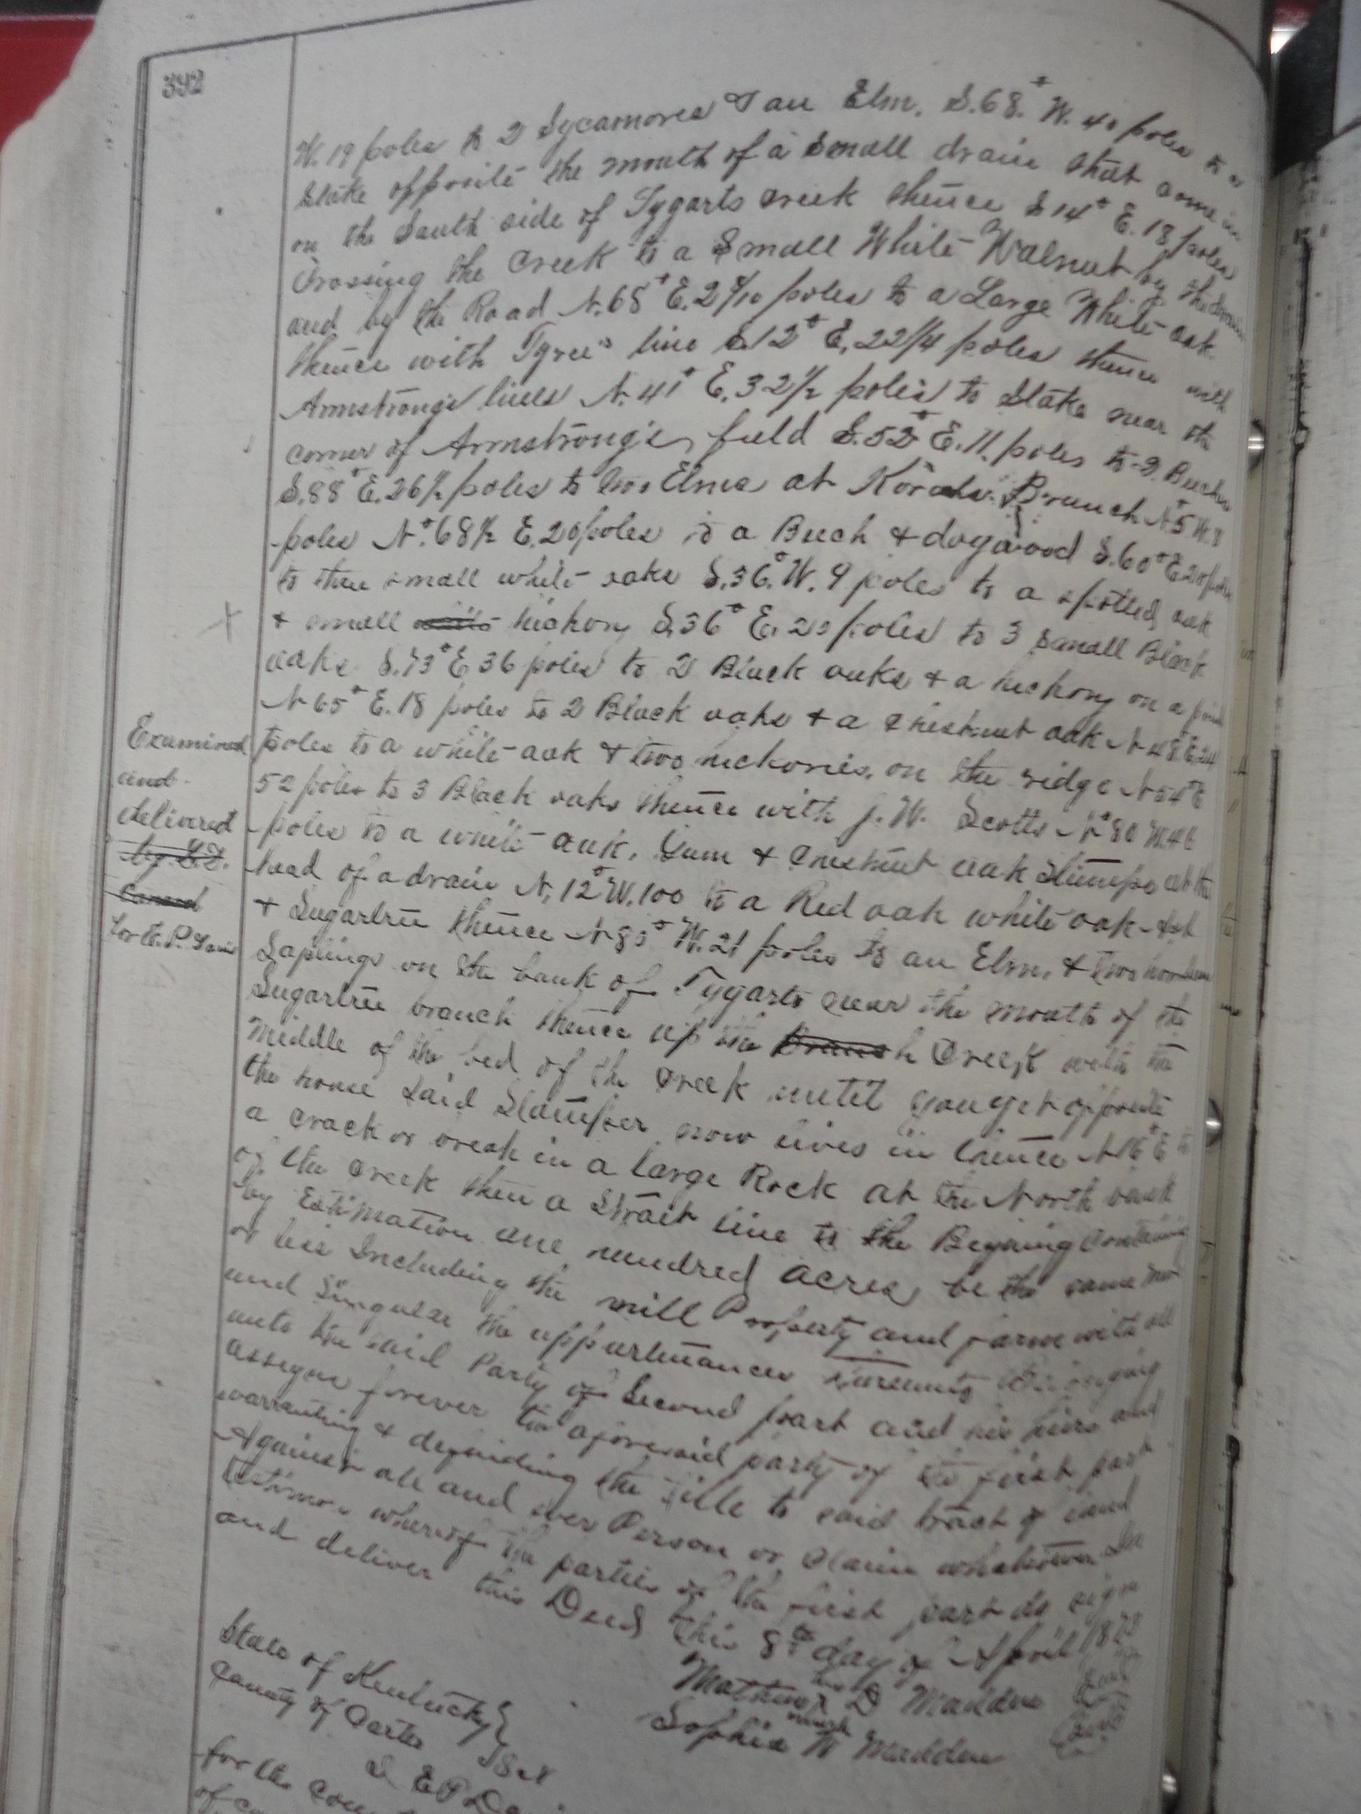 392
W. 19 poles to 2 Sycamores & an Elm. S. 68° W. 40 poles to a
Stake opposite the mouth of a Small drain that come in
on the South side of Tygarts creek thence S 14° E. 18 poles
Crossing the Creek to a Small White Walnut by the drain
and by the Road N. 65° E. 2 4/10 poles to a Large White oak
thence with Tyree's line S. 12° E. 22 1/4 poles thence with
Armstrong's lines N. 41° E. 32 1/2 poles to Stake near the
corner of Armstrong's field S. 52° E. 11. poles to 2. Buches
S. 88° E. 26 1/2 poles to two Elms at Branch N 5 W. 8
poles N° 68 1/2 E. 20 poles to a Buch & dogwood S. 60° E 20 poles
to three small white oaks S. 36° W. 9 poles to a spotted oak
& small white hickory S. 36° E. 20 poles to 3 Small Black
oaks S. 73° E 36 poles to 2 Black oaks & a hickory on a point
N 65° E. 18 poles to 2 Black oaks & a chestnut oak N 48 E. 24
poles to a white oak & two hickories, on the ridge N 54° E
52 poles to 3 Black oaks thence with J. W. Scotts N° 80 W. 46
poles to a white oak, Gum & Chestnut oak Stumps at the
head of a drain N. 12° W. 100 to a Red oak white oak Ash
& Sugartree thence N 85° W. 21 poles to an Elm, & two
Saplings on the bank of Tygarts near the mouth of the
Sugartree branch thence up the Branch Creek with the
Middle of the bed of the creek until you get opposite
the house Said Stamper now lives in thence N 16° E to
a crack or break in a large Rock at the North bank
of the creek then a Strait line to the Begining Containing
by Estimation one hundred acres, be the same more
or less Including the mill Property and farm with all
and Singular the appurtenances thereunto belonging
unto the said Party of Second part and his heirs and
assigns forever the aforesaid party of the first part
warranting & defending the title to said tract of land
Against all and ever Person or Claim whatsoever In
testimony whereof the parties of the first part do sign
and deliver this Deed this 8th day of April 187
Mathew D Madden Seal
his
mark
Sophia W Madden Seal
State of Kentucky
County of Carter } Sct
I E P Da
for the Coun
of
Examined
and
delivered
by
to E. P. Davis